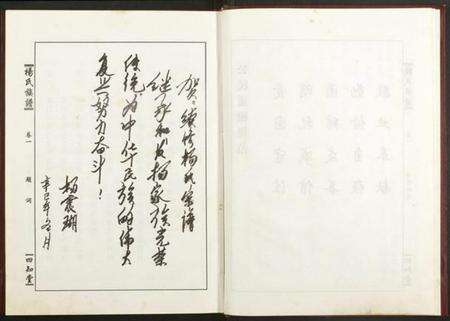 贺:续修杨氏宗谱
继承和发扬家族光荣
传统,为中华民族的伟大
复兴努力奋斗!
杨震瑚
辛巳年冬月
楊氏族譜
卷一
題詞
四知堂